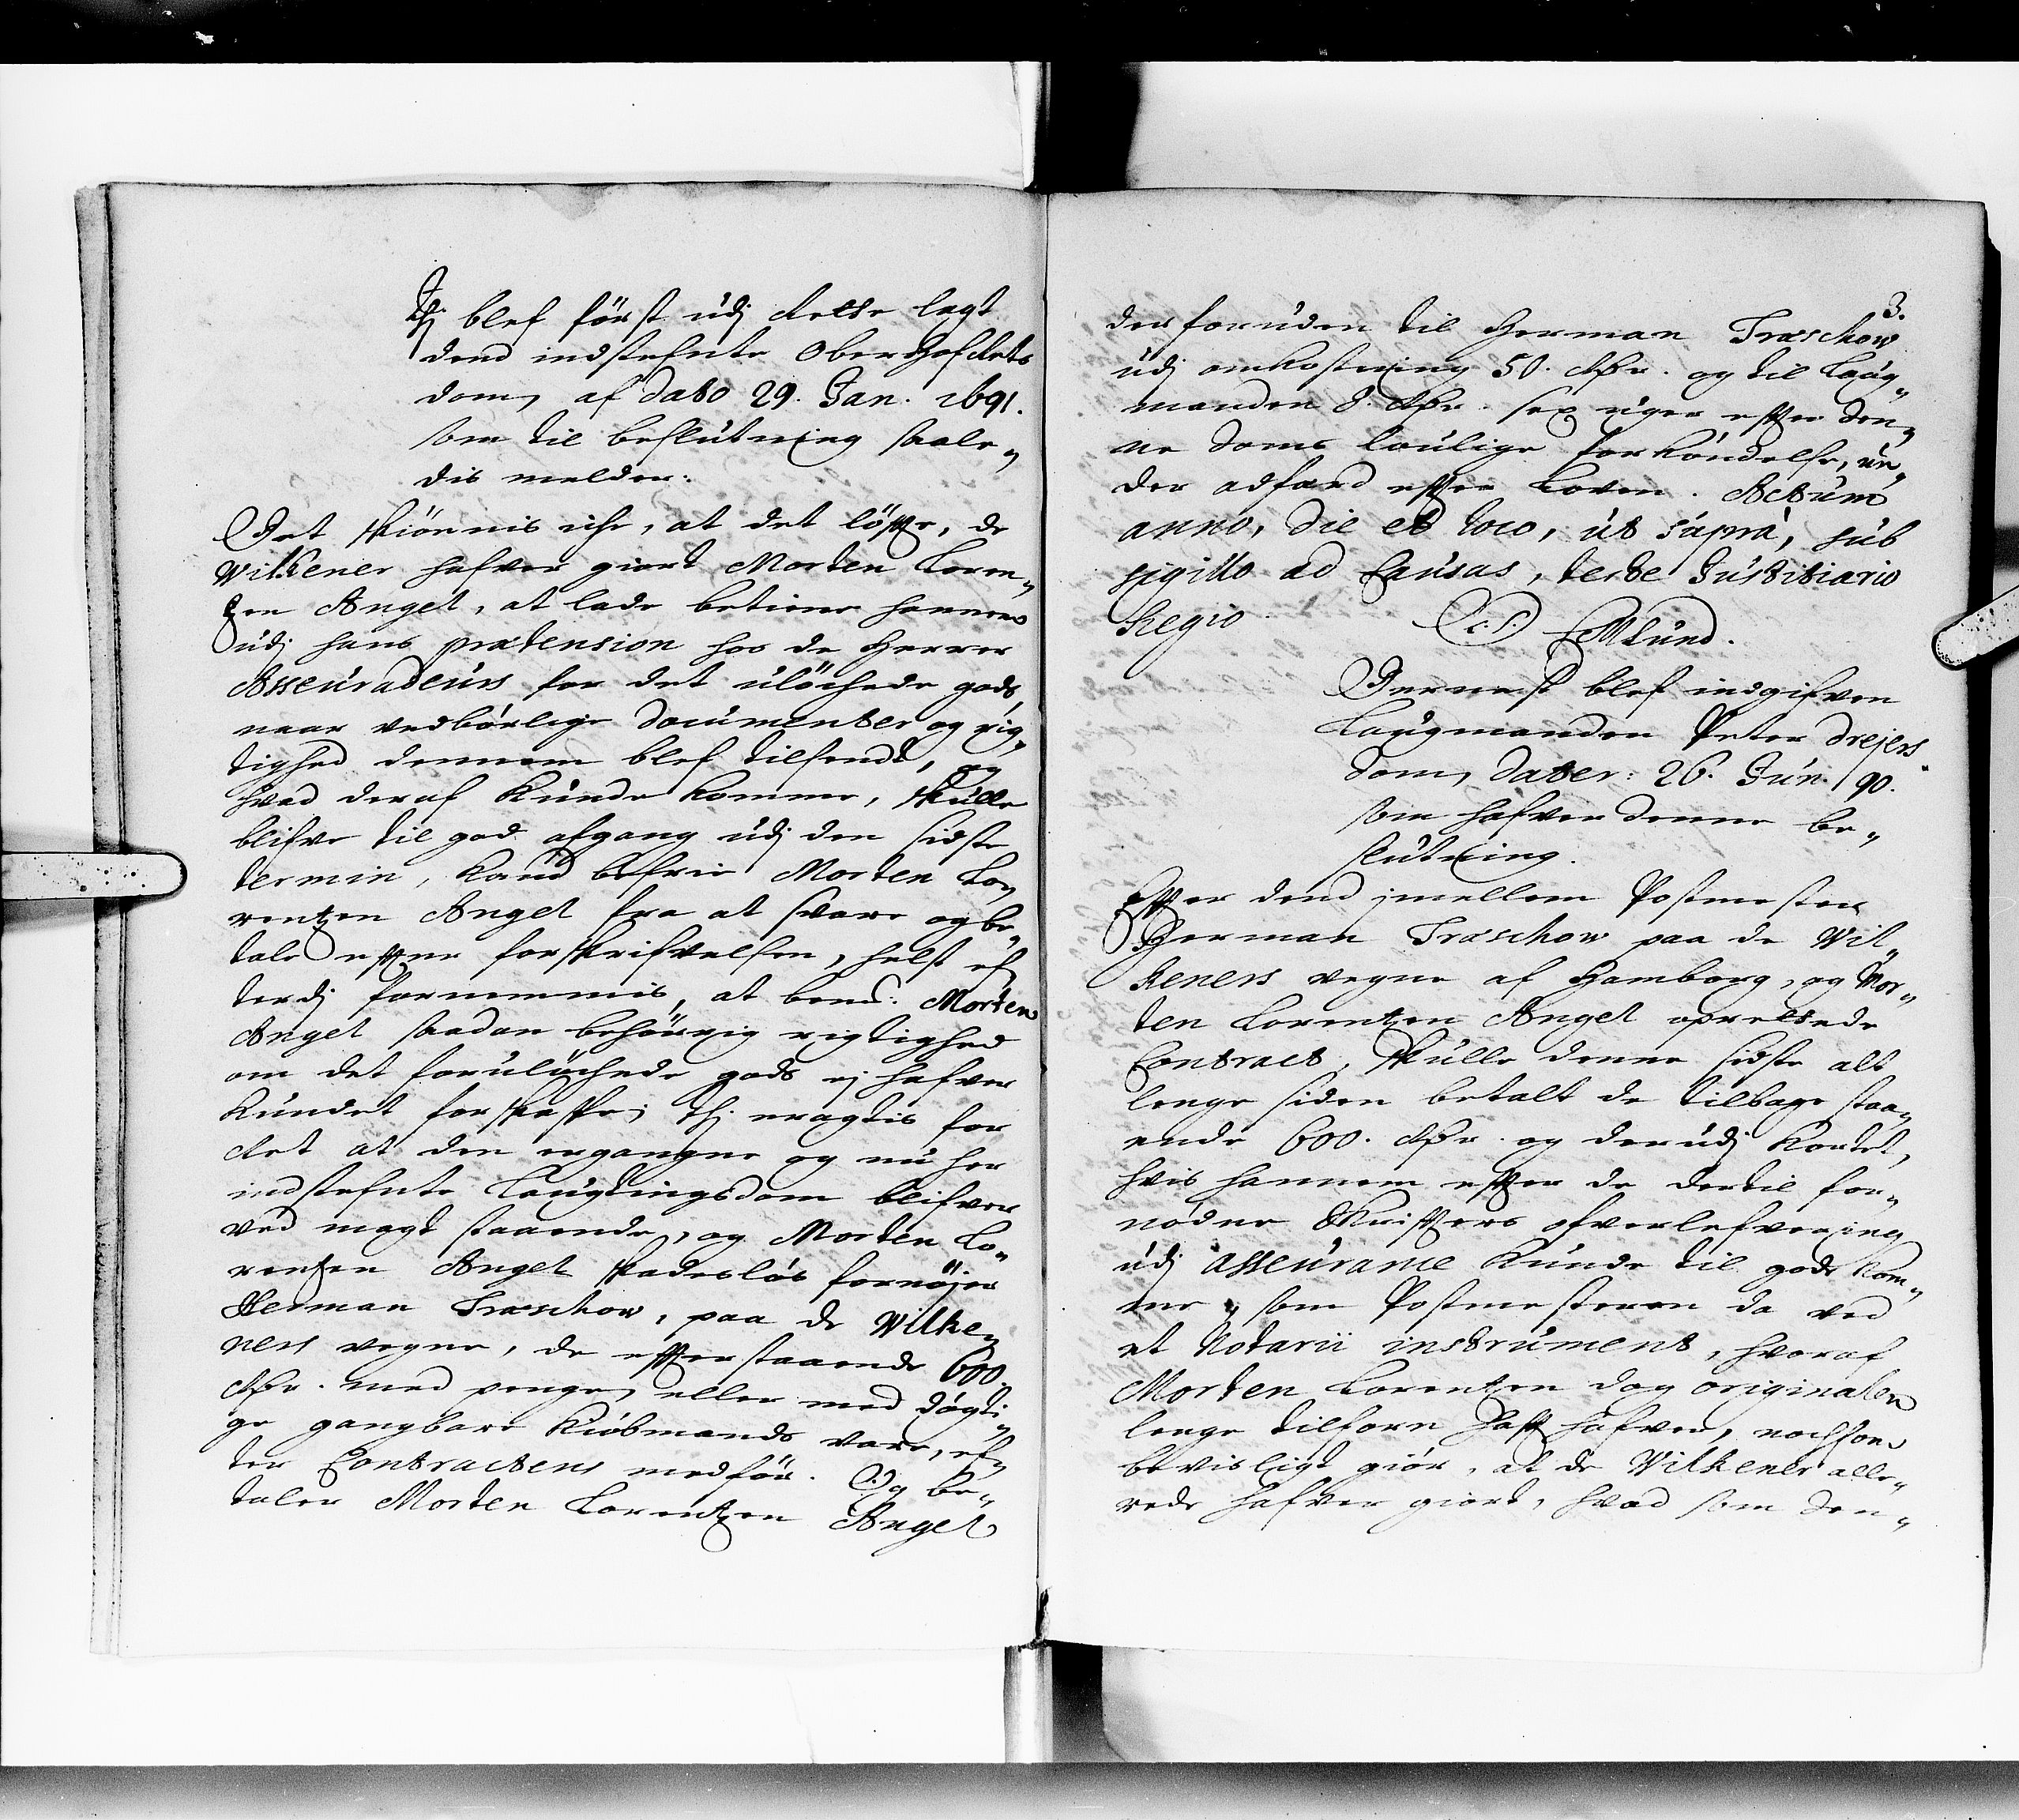 Thj blef först udj Rette lagt
dend indstefnte OberHofRets
dom, af dato 29. Jan. 1691.
som til beslutning saale„
dis melder:
Det skiönnis iche, at det löfte, de
Wilkener hafver giort Morten Loren„
tzen Angel, at lade betiene hannem
udj hans prætension hos de Herrer
Asseuradeurs for det ulöchede gods,
naar vedbörlige documenter og rig„
tighed dennem blef tilsendt, og
hvad deraf kunde komme, skulle
blifve til god afgang udj den sidste
termin, kand befrie Morten Lo„
rentzen Angel fra at svare og be„
tale efter forskrifvelsen, helst ef„
terdj fornemmis, at bem.te Morten
Angel saadan behörrig rigtighed
om det forulöchede gods ej hafver
kundet forskaffe; thj eragtis for
Ret at den ergangne og nu her
indstefnte Laugtingsdom blifver
ved magt staaende, og Morten Lo„
rentzen Angel skadeslös fornöjer
Herman Traschow, paa de Wilke„
ners vegne, de efterstaaende 600.
Rdr. med penge, eller med dögti„
ge gangbare Kiöbmands vare, ef„
ter Contractens medför. Og be„
taler Morten Lorentzen Angel
3.
der foruden til Herman Traschow
udj omkostning 50. Rdr. og til Laug„
manden 8. Rdr. sex uger efter den„
ne doms loulige forköndelse, un„
der adfærd efter Loven. Actum
anno, die et loco, ut supra, sub
sigillo ad Causas, teste Justitiario
Regio. (L.S.) Mund.
Dernest blef indgifven
Laugmanden Peter Drejers
dom, dater: 26. Jun. 90.
som hafver denne be„
slutning.
Efter dend imellem Postmester
Herman Traschow paa de Wil„
keners vegne af Hamborg, og Mor„
ten Lorentzen Angel oprettede
Contract, skulle denne sidste alt
lenge siden betalt de tilbage staa„
ende 600. Rdr. og derudj kortet,
hvis hannem efter de dertil for„
nödne Skrifters ofverlefvering
udj asseurance kunde til gode kom„
me, som Postmesteren da ved
et Notarii instrument, hvoraf
Morten Lorentzen dog originalen
lenge tilforn haft hafver, nochsom
bevisligt giör, at de Wilkener alle„
rede hafver giort, hvad som den„